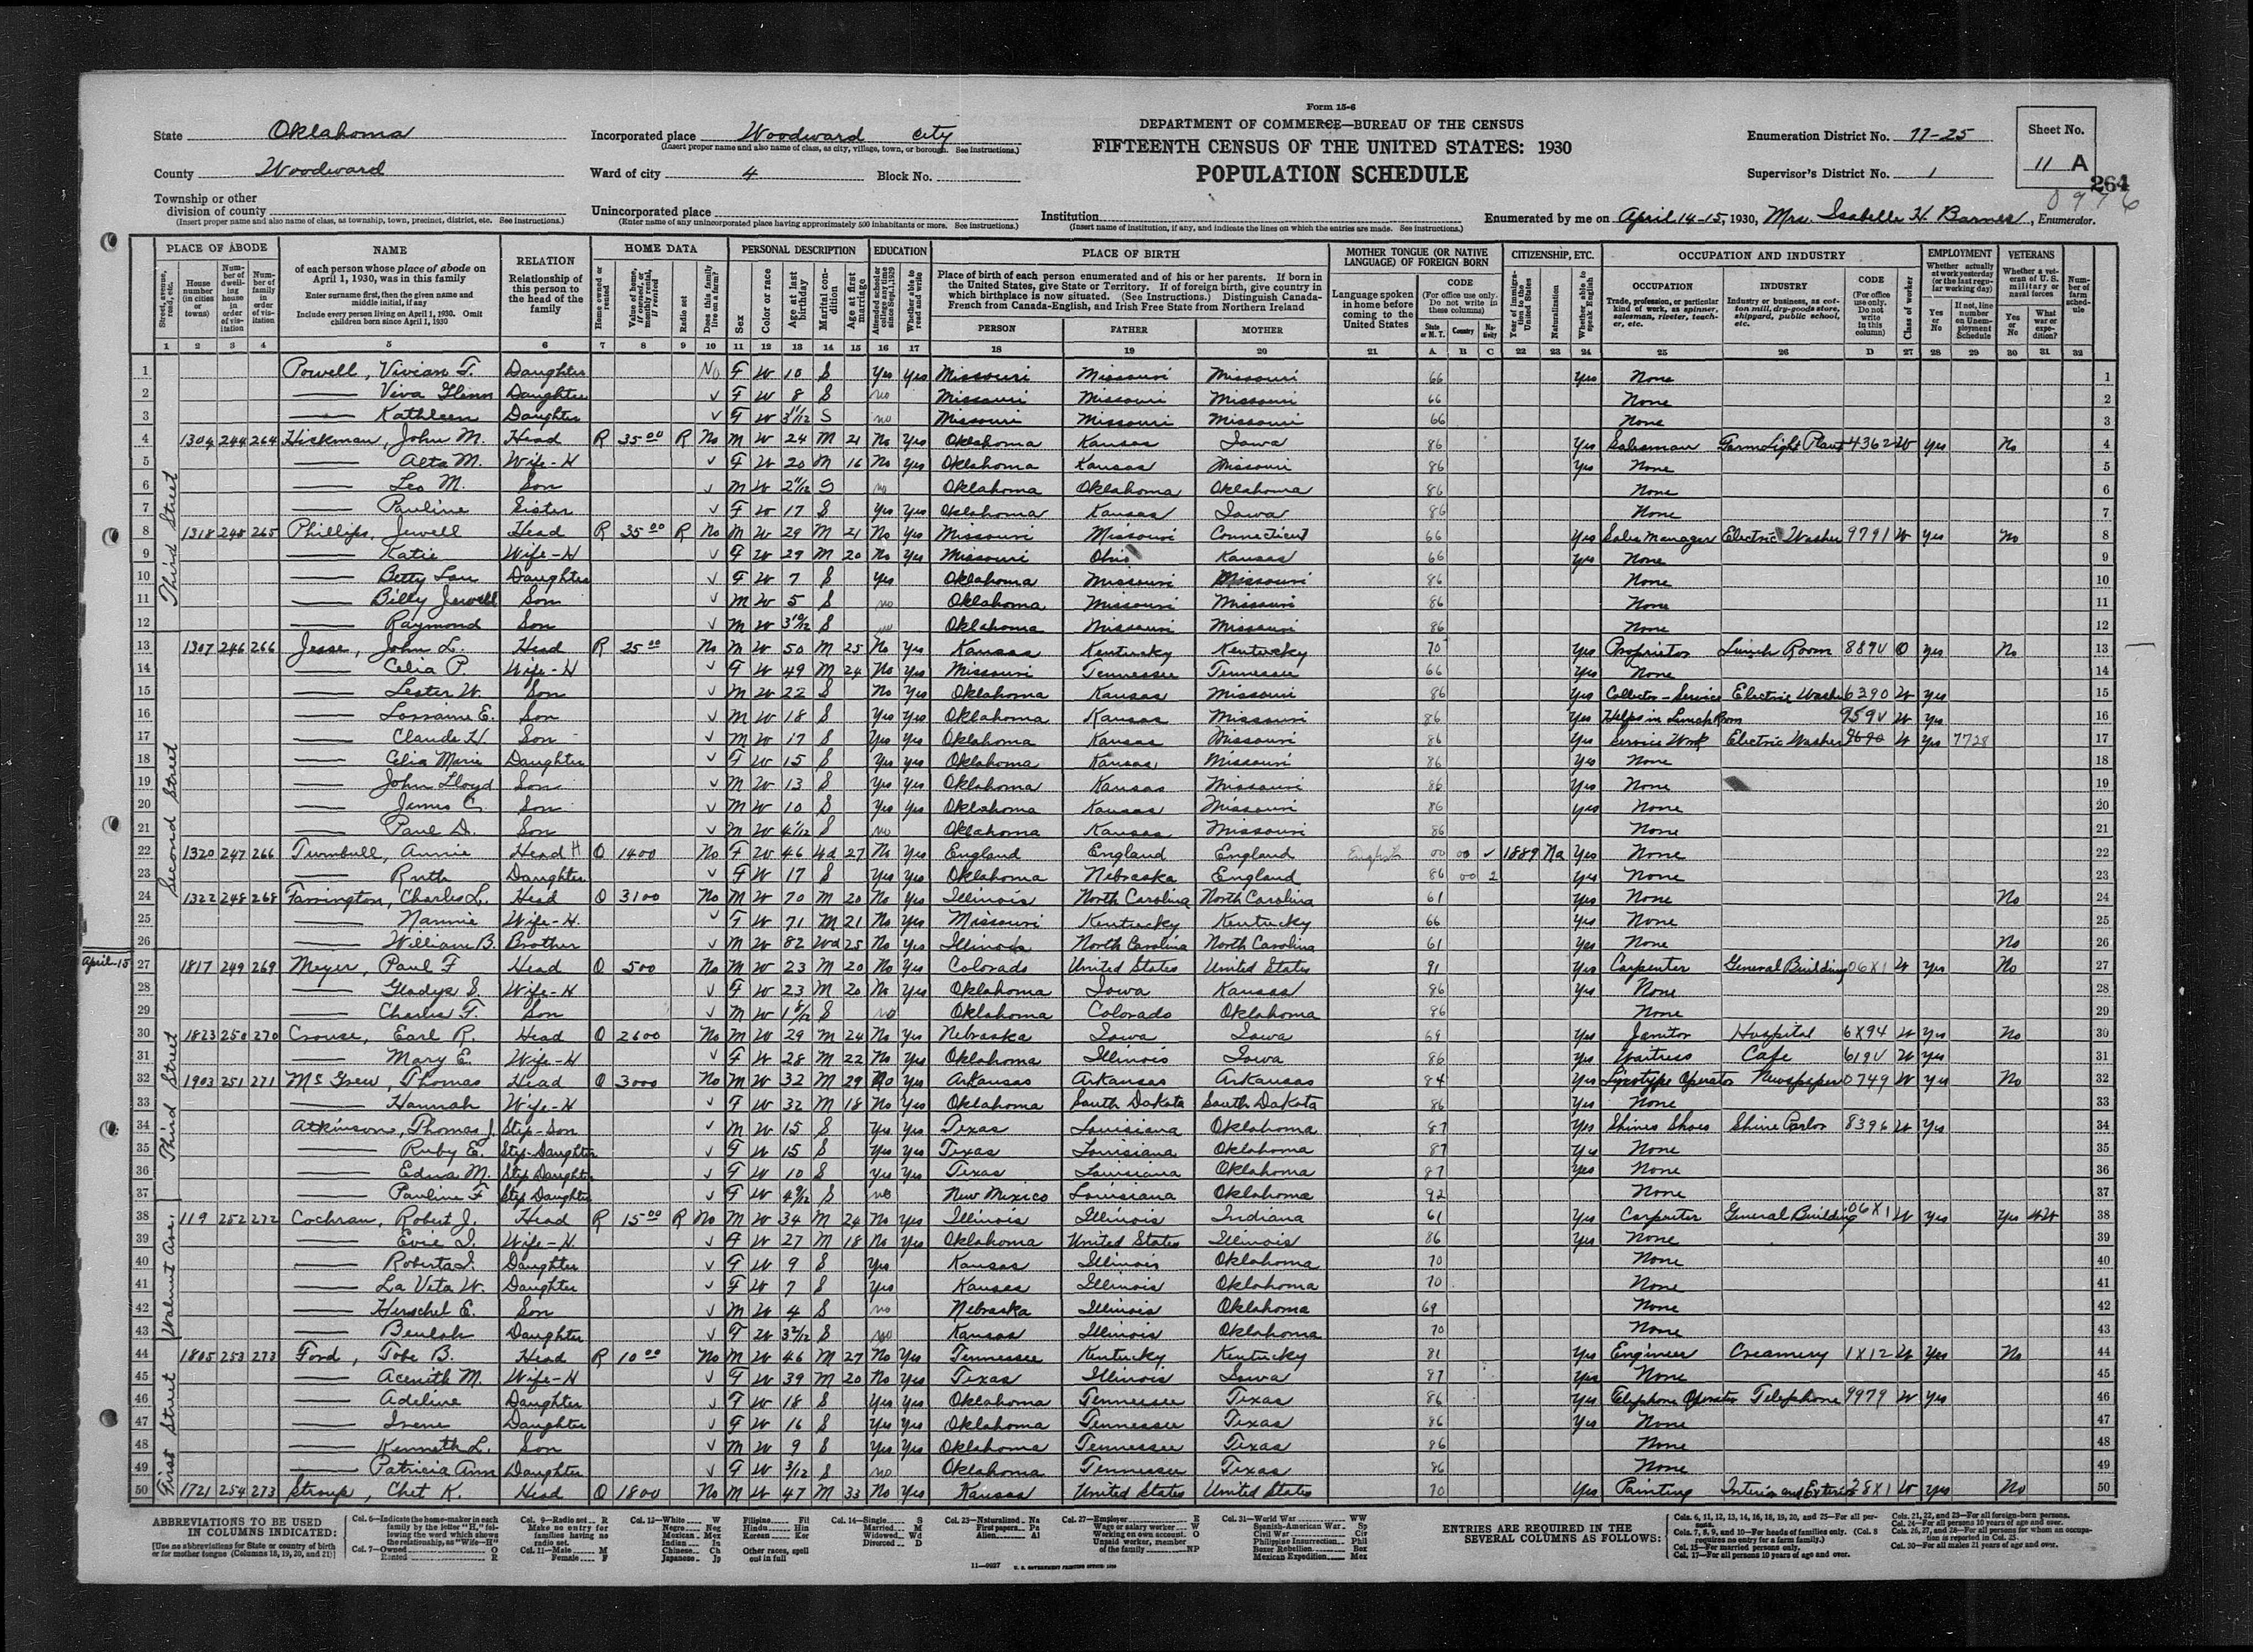 Form 15-6
State Oklahoma
Incorporated place Woodward city
(Insert proper name and also name of class, as city, village, town, or borough. See instructions.)
DEPARTMENT OF COMMERCE—BUREAU OF THE CENSUS
FIFTEENTH CENSUS OF THE UNITED STATES: 1930
POPULATION SCHEDULE
Enumeration District No. 77-25
Sheet No.
11 A
264
0976
County Woodward
Ward of city 4 Block No.
Supervisor's District No. 1
Township or other division of county
(Insert proper name and also name of class, as township, town, precinct, district, etc. See instructions.)
Unincorporated place
(Enter name of any unincorporated place having approximately 500 inhabitants or more. See instructions.)
Institution
(Insert name of institution, if any, and indicate the lines on which the entries are made. See instructions.)
Enumerated by me on April 14-15, 1930, Mrs. Isabelle H. Barnes, Enumerator.
PLACE OF ABODE NAME RELATION HOME DATA PERSONAL DESCRIPTION EDUCATION PLACE OF BIRTH MOTHER TONGUE (OR NATIVE LANGUAGE) OF FOREIGN BORN CITIZENSHIP, ETC. OCCUPATION AND INDUSTRY EMPLOYMENT VETERANS
1 Powell, Vivian T. Daughter No F W 10 S Yes Yes Missouri Missouri Missouri 66 Yes None 1
2 Viva Glenn Daughter V F W 8 S no Missouri Missouri Missouri 66 None 2
3 Kathleen Daughter V F W 3 11/12 S no Missouri Missouri Missouri 66 None 3
4 1304 244 264 Hickman, John M. Head R 35 00 R No M W 24 M 21 No Yes Oklahoma Kansas Iowa 86 Yes Salesman Farm Light Plant 4362 W Yes No 4
5 Alta M. Wife-H V F W 20 M 16 No Yes Oklahoma Kansas Missouri 86 Yes None 5
6 Leo M. Son V M W 2 11/12 S no Oklahoma Oklahoma Oklahoma 86 None 6
7 Pauline Sister V F W 17 S Yes Yes Oklahoma Kansas Iowa 86 None 7
8 1318 245 265 Phillips, Jewell Head R 35 00 R No M W 29 M 21 No Yes Missouri Missouri Connecticut 66 Yes Sales Manager Electric Washer 9791 W Yes No 8
9 Katie Wife-H V F W 29 M 20 No Yes Missouri Ohio Kansas 66 Yes None 9
10 Betty Lou Daughter V F W 7 S Yes Oklahoma Missouri Missouri 86 None 10
11 Billy Jewell Son V M W 5 S no Oklahoma Missouri Missouri 86 None 11
12 Raymond Son V M W 3 10/12 S no Oklahoma Missouri Missouri 86 None 12
13 1307 246 266 Jesse, John L. Head R 25 00 No M W 50 M 25 No Yes Kansas Kentucky Kentucky 70 Yes Proprietor Lunch Room 889V O Yes No 13
14 Celia P. Wife-H V F W 49 M 24 No Yes Missouri Tennessee Tennessee 66 Yes None 14
15 Lester W. Son V M W 22 S No Yes Oklahoma Kansas Missouri 86 Yes Collector-Service Electric Washer 6390 W Yes 15
16 Lorraine E. Son V M W 18 S Yes Yes Oklahoma Kansas Missouri 86 Yes Helps in Lunch Room 959V W Yes 16
17 Claude H Son V M W 17 S Yes Yes Oklahoma Kansas Missouri 86 Yes Service Work Electric Washer 9690 W Yes 7728 17
18 Celia Marie Daughter V F W 15 S Yes Yes Oklahoma Kansas Missouri 86 Yes None 18
19 John Lloyd Son V M W 13 S Yes Yes Oklahoma Kansas Missouri 86 Yes None 19
20 James C. Son V M W 10 S Yes Yes Oklahoma Kansas Missouri 86 Yes None 20
21 Paul D. Son V M W 4 1/12 S no Oklahoma Kansas Missouri 86 None 21
22 1320 247 266 Turnbull, Annie Head H O 1400 No F W 46 Wd 27 No Yes England England England English 00 00 V 1889 Na Yes None 22
23 Ruth Daughter V F W 17 S Yes Yes Oklahoma Nebraska England 86 00 2 Yes None 23
24 1322 248 268 Farrington, Charles L. Head O 3100 No M W 70 M 20 No Yes Illinois North Carolina North Carolina 61 Yes None No 24
25 Nannie Wife-H. V F W 71 M 21 No Yes Missouri Kentucky Kentucky 66 Yes None 25
26 William B. Brother V M W 82 Wd 25 No Yes Illinois North Carolina North Carolina 61 Yes None No 26
April-15
27 1817 249 269 Meyer, Paul F Head O 500 No M W 23 M 20 No Yes Colorado United States United States 91 Yes Carpenter General Building 06X1 W Yes No 27
28 Gladys S. Wife-H V F W 23 M 20 No Yes Oklahoma Iowa Kansas 86 Yes None 28
29 Charles F. Son V M W 1 8/12 S no Oklahoma Colorado Oklahoma 86 None 29
30 1823 250 270 Crouse, Earl R. Head O 2600 No M W 29 M 24 No Yes Nebraska Iowa Iowa 69 Yes Janitor Hospital 6X94 W Yes No 30
31 Mary E. Wife-H V F W 28 M 22 No Yes Oklahoma Illinois Iowa 86 Yes Waitress Cafe 619V W Yes 31
32 1903 251 271 McGrew, Thomas Head O 3000 No M W 32 M 29 No Yes Arkansas Arkansas Arkansas 84 Yes Linotype Operator Newspaper 0749 W Yes No 32
33 Hannah Wife-H V F W 32 M 18 No Yes Oklahoma South Dakota South Dakota 86 Yes None 33
34 Atkinson, Thomas J. Step-Son V M W 15 S Yes Yes Texas Louisiana Oklahoma 87 Yes Shines Shoes Shine Parlor 8396 W Yes 34
35 Ruby E. Step-Daughter V F W 15 S Yes Yes Texas Louisiana Oklahoma 87 Yes None 35
36 Edna M. Step Daughter V F W 10 S Yes Yes Texas Louisiana Oklahoma 87 Yes None 36
37 Pauline F Step Daughter V F W 4 9/12 S no New Mexico Louisiana Oklahoma 92 None 37
38 119 252 272 Cochran, Robert J. Head R 15 00 R No M W 34 M 24 No Yes Illinois Illinois Indiana 61 Yes Carpenter General Building 06X1 W Yes Yes WW 38
39 Evie I. Wife-H. V F W 27 M 18 No Yes Oklahoma United States Illinois 86 Yes None 39
40 Roberta I. Daughter V F W 9 S Yes Kansas Illinois Oklahoma 70 None 40
41 La Veta W. Daughter V F W 7 S Yes Kansas Illinois Oklahoma 70 None 41
42 Herschel E. Son V M W 4 S no Nebraska Illinois Oklahoma 69 None 42
43 Beulah Daughter V F W 3 2/12 S no Kansas Illinois Oklahoma 70 None 43
44 1805 253 273 Ford, Tobe B. Head R 10 00 No M W 46 M 27 No Yes Tennessee Kentucky Kentucky 81 Yes Engineer Creamery 1X12 W Yes No 44
45 Acenith M. Wife-H V F W 39 M 20 No Yes Texas Illinois Iowa 87 Yes None 45
46 Adeline Daughter V F W 18 S Yes Yes Oklahoma Tennessee Texas 86 Yes Telephone Operator Telephone 9979 W Yes 46
47 Irene Daughter V F W 16 S Yes Yes Oklahoma Tennessee Texas 86 Yes None 47
48 Kenneth L. Son V M W 9 S Yes Yes Oklahoma Tennessee Texas 86 None 48
49 Patricia Ann Daughter V F W 3/12 S no Oklahoma Tennessee Texas 86 None 49
50 1721 254 273 Stroup, Chet K. Head O 1800 No M W 47 M 33 No Yes Kansas United States United States 70 Yes Painting Interior and Exterior 28X1 W Yes No 50
Third Street
Second Street
Third Street
Walnut Ave.
First Street
ABBREVIATIONS TO BE USED IN COLUMNS INDICATED:
[Use no abbreviations for State or country of birth or for mother tongue (Columns 18, 19, 20, and 21)]
ENTRIES ARE REQUIRED IN THE SEVERAL COLUMNS AS FOLLOWS:
11—9927 U. S. GOVERNMENT PRINTING OFFICE: 1930